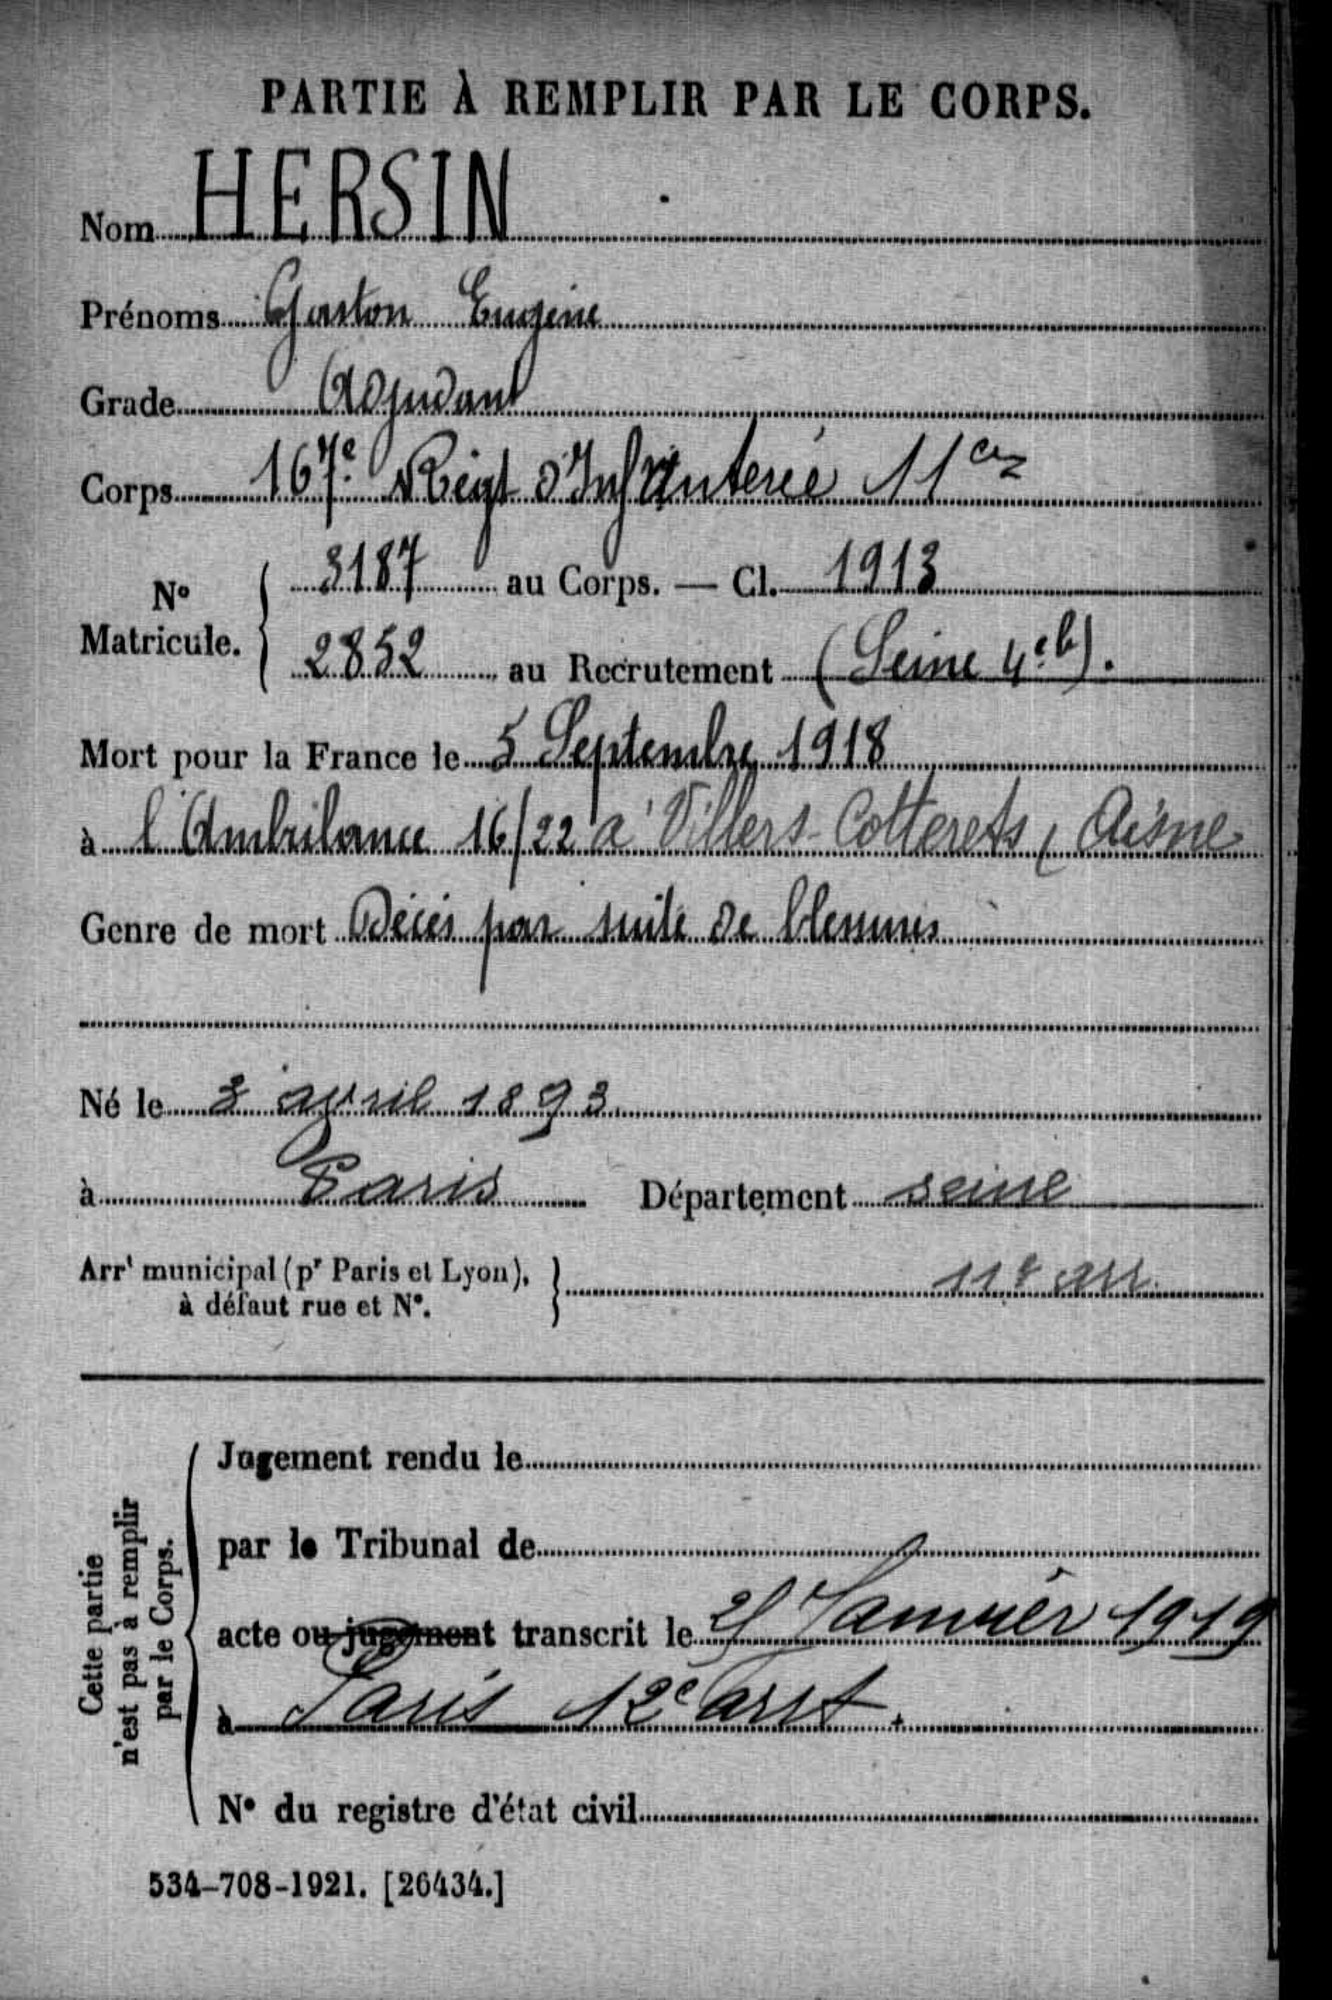 PARTIE À REMPLIR PAR LE CORPS.
Nom HERSIN
Prénoms Gaston Eugène
Grade Adjudant
Corps 167e Régt d'Infanterie 11 cie
No Matricule. 3187 au Corps. — Cl. 1913
2852 au Recrutement (Seine 4e b).
Mort pour la France le 5 Septembre 1918
à l'Ambulance 16/22 à Villers-Cotterets, Aisne
Genre de mort Décès par suite de blessures
Né le 3 avril 1893
à Paris Département seine
Arrt municipal (pr Paris et Lyon), à défaut rue et No. 11e arr.
Cette partie n'est pas à remplir par le Corps.
Jugement rendu le
par le Tribunal de
acte ou jugement transcrit le Janvier 1919
à Paris 12e arrt.
No du registre d'état civil
534-708-1921. [26434.]